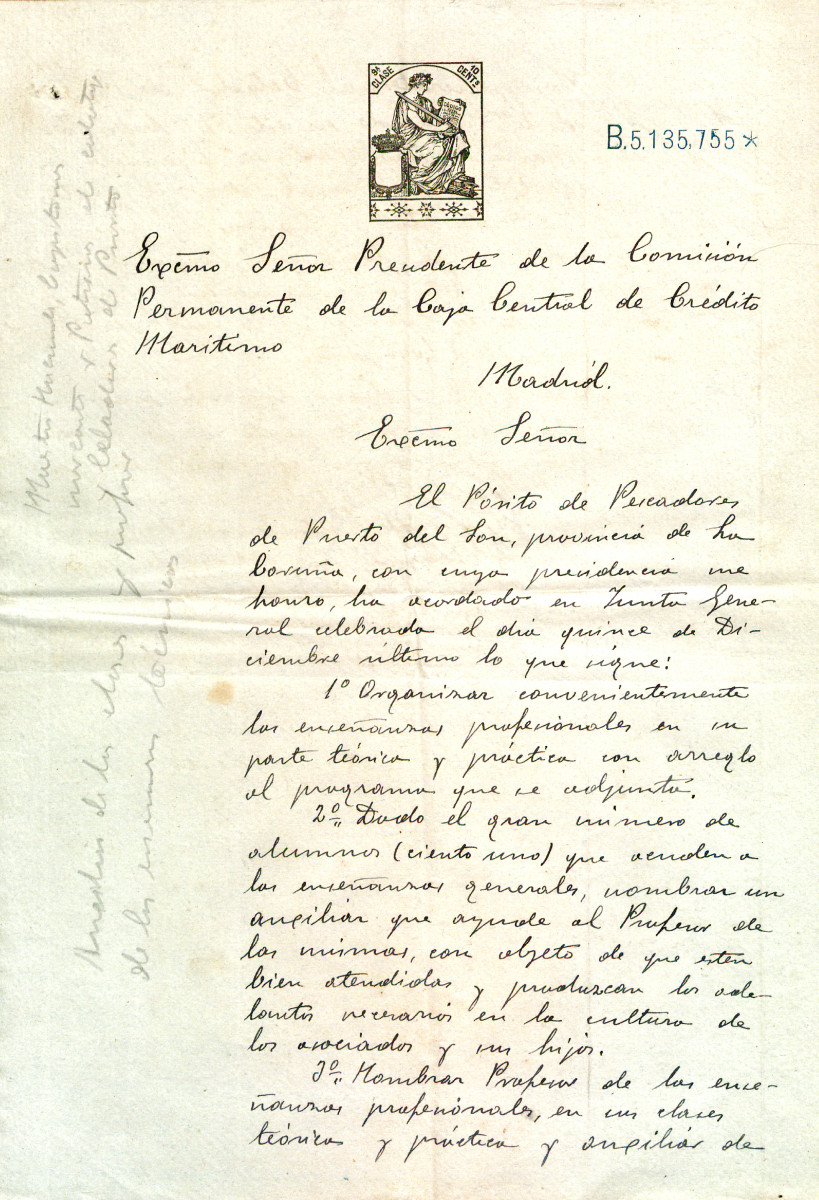 9ª CLASE 10 CENTS
B.5,135,755*
Excmo Señor Presidente de la Comisión
Permanente de la Caja Central de Crédito
Maritimo
Madrid.
Excmo Señor
El Pósito de Pescadores
de Puerto del Son, provincia de La
Coruña, con cuya presidencia me
honro, ha acordado en Junta Gene-
ral celebrada el dia quince de Di-
ciembre último lo que sigue:
1º Organizar convenientemente
las enseñanzas profesionales en su
parte teórica y práctica con arreglo
al programa que se adjunta.
2º Dado el gran número de
alumnos (ciento uno) que acuden a
las enseñanzas generales, nombrar un
auxiliar que ayude al Profesor de
las mismas, con objeto de que esten
bien atendidas y produzcan los ade-
lantos necesarios en la cultura de
los asociados y sus hijos.
3º Nombrar Profesor de las ense-
ñanzas profesionales, en sus clases
teórica y práctica y auxiliar de
y Patrones de
y Celadores de Puerto.
de los y
de las enseñanzas técnicas